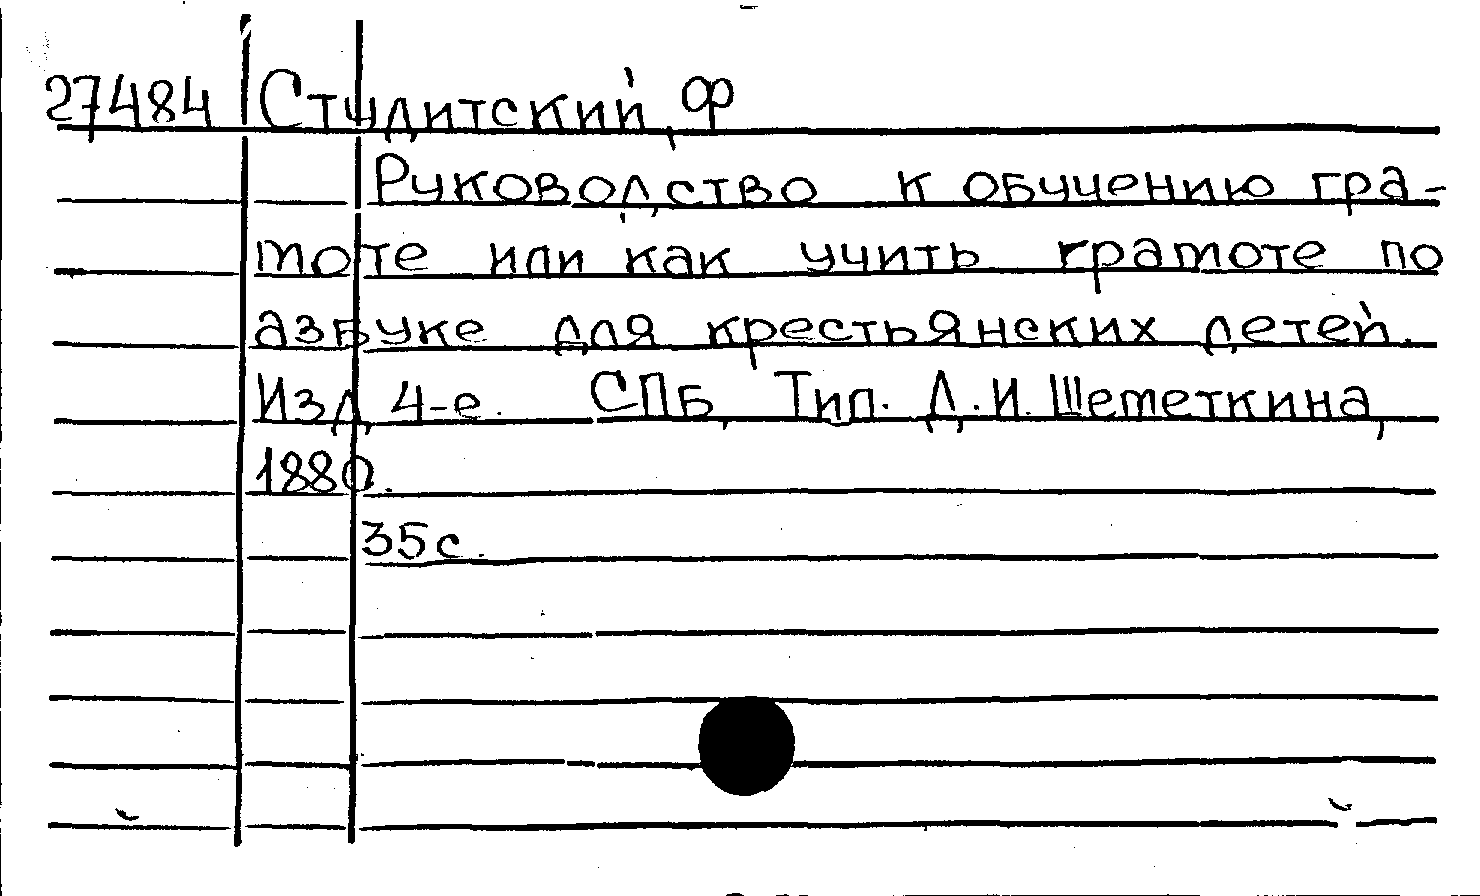 27484 Студитский, Ф
Руководство к обучению гра-
моте или как учить грамоте по
азбуке для крестьянских детей.
Изд 4-е. СПБ, Тип. Д.И. Шеметкина,
1880.
35 с.